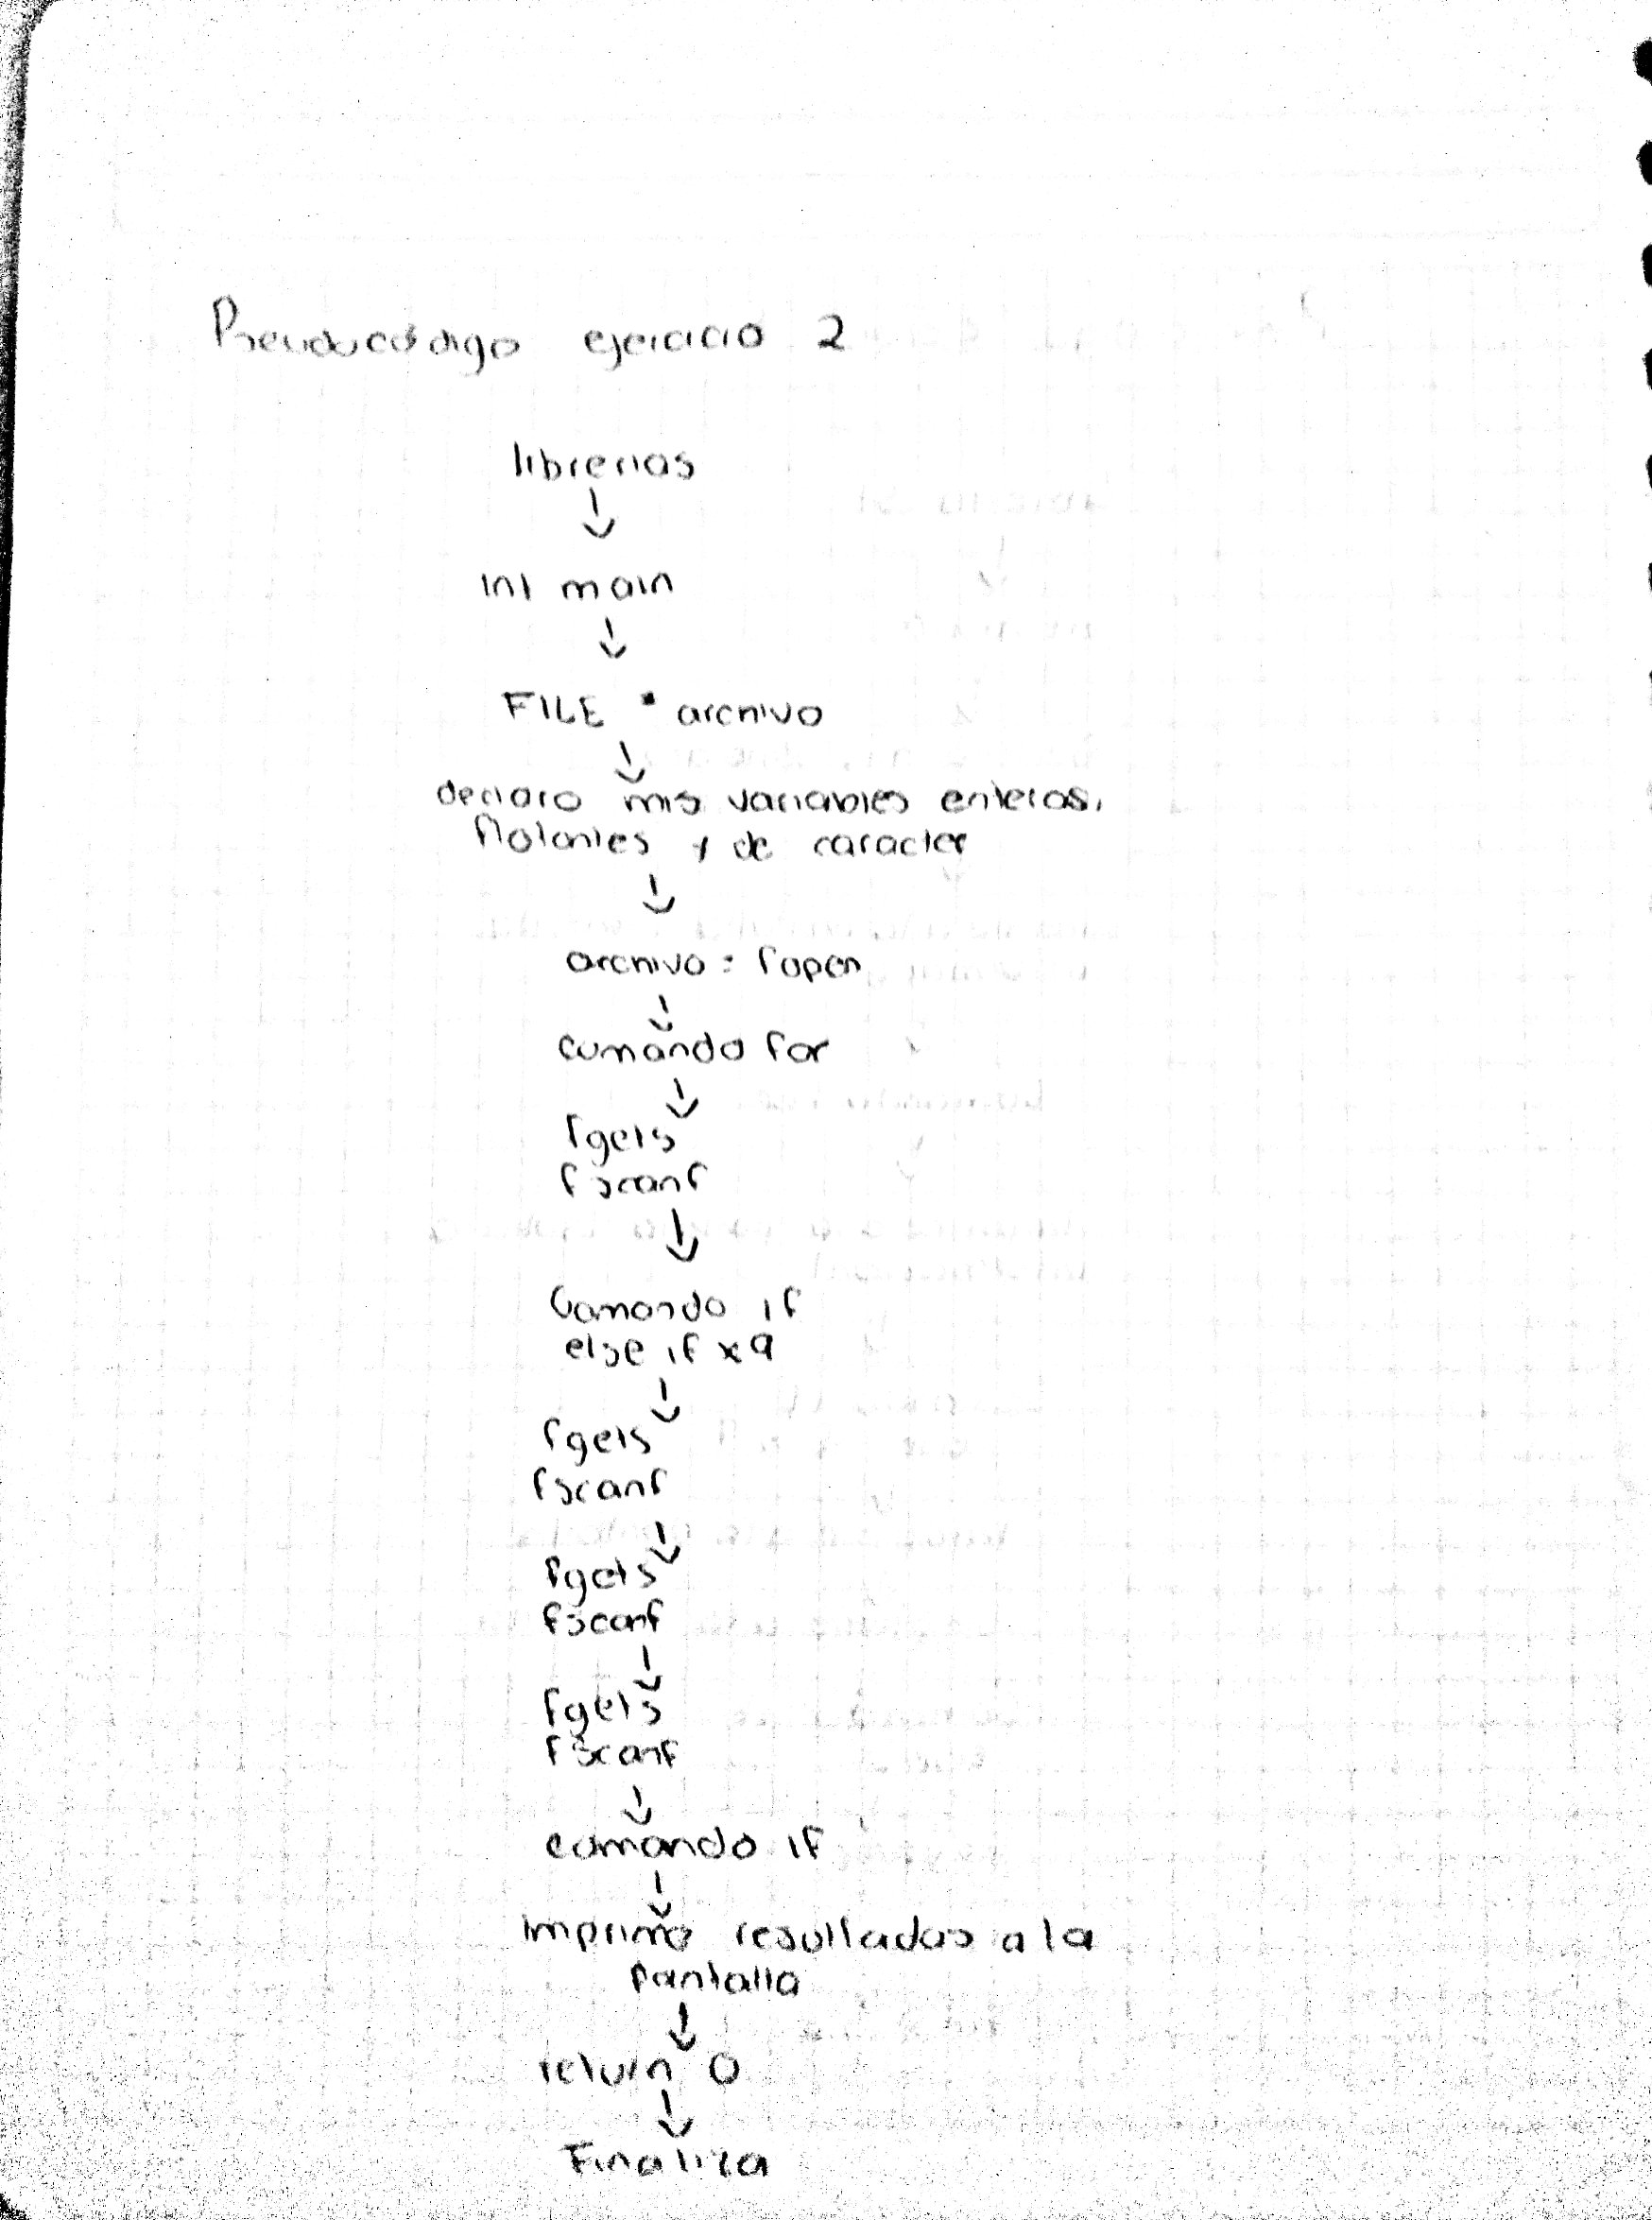 Pseudocódigo ejercicio 2
librerias
↓
int main
↓
FILE * archivo
↓
declaro mis variables enteras,
flotantes y de caracter
↓
archivo = fopen
↓
comando for
↓
fgets
fscanf
↓
Comando if
else if x9
↓
fgets
fscanf
↓
fgets
fscanf
↓
fgets
fscanf
↓
comando if
↓
imprimo resultados a la
pantalla
↓
return 0
↓
Finaliza